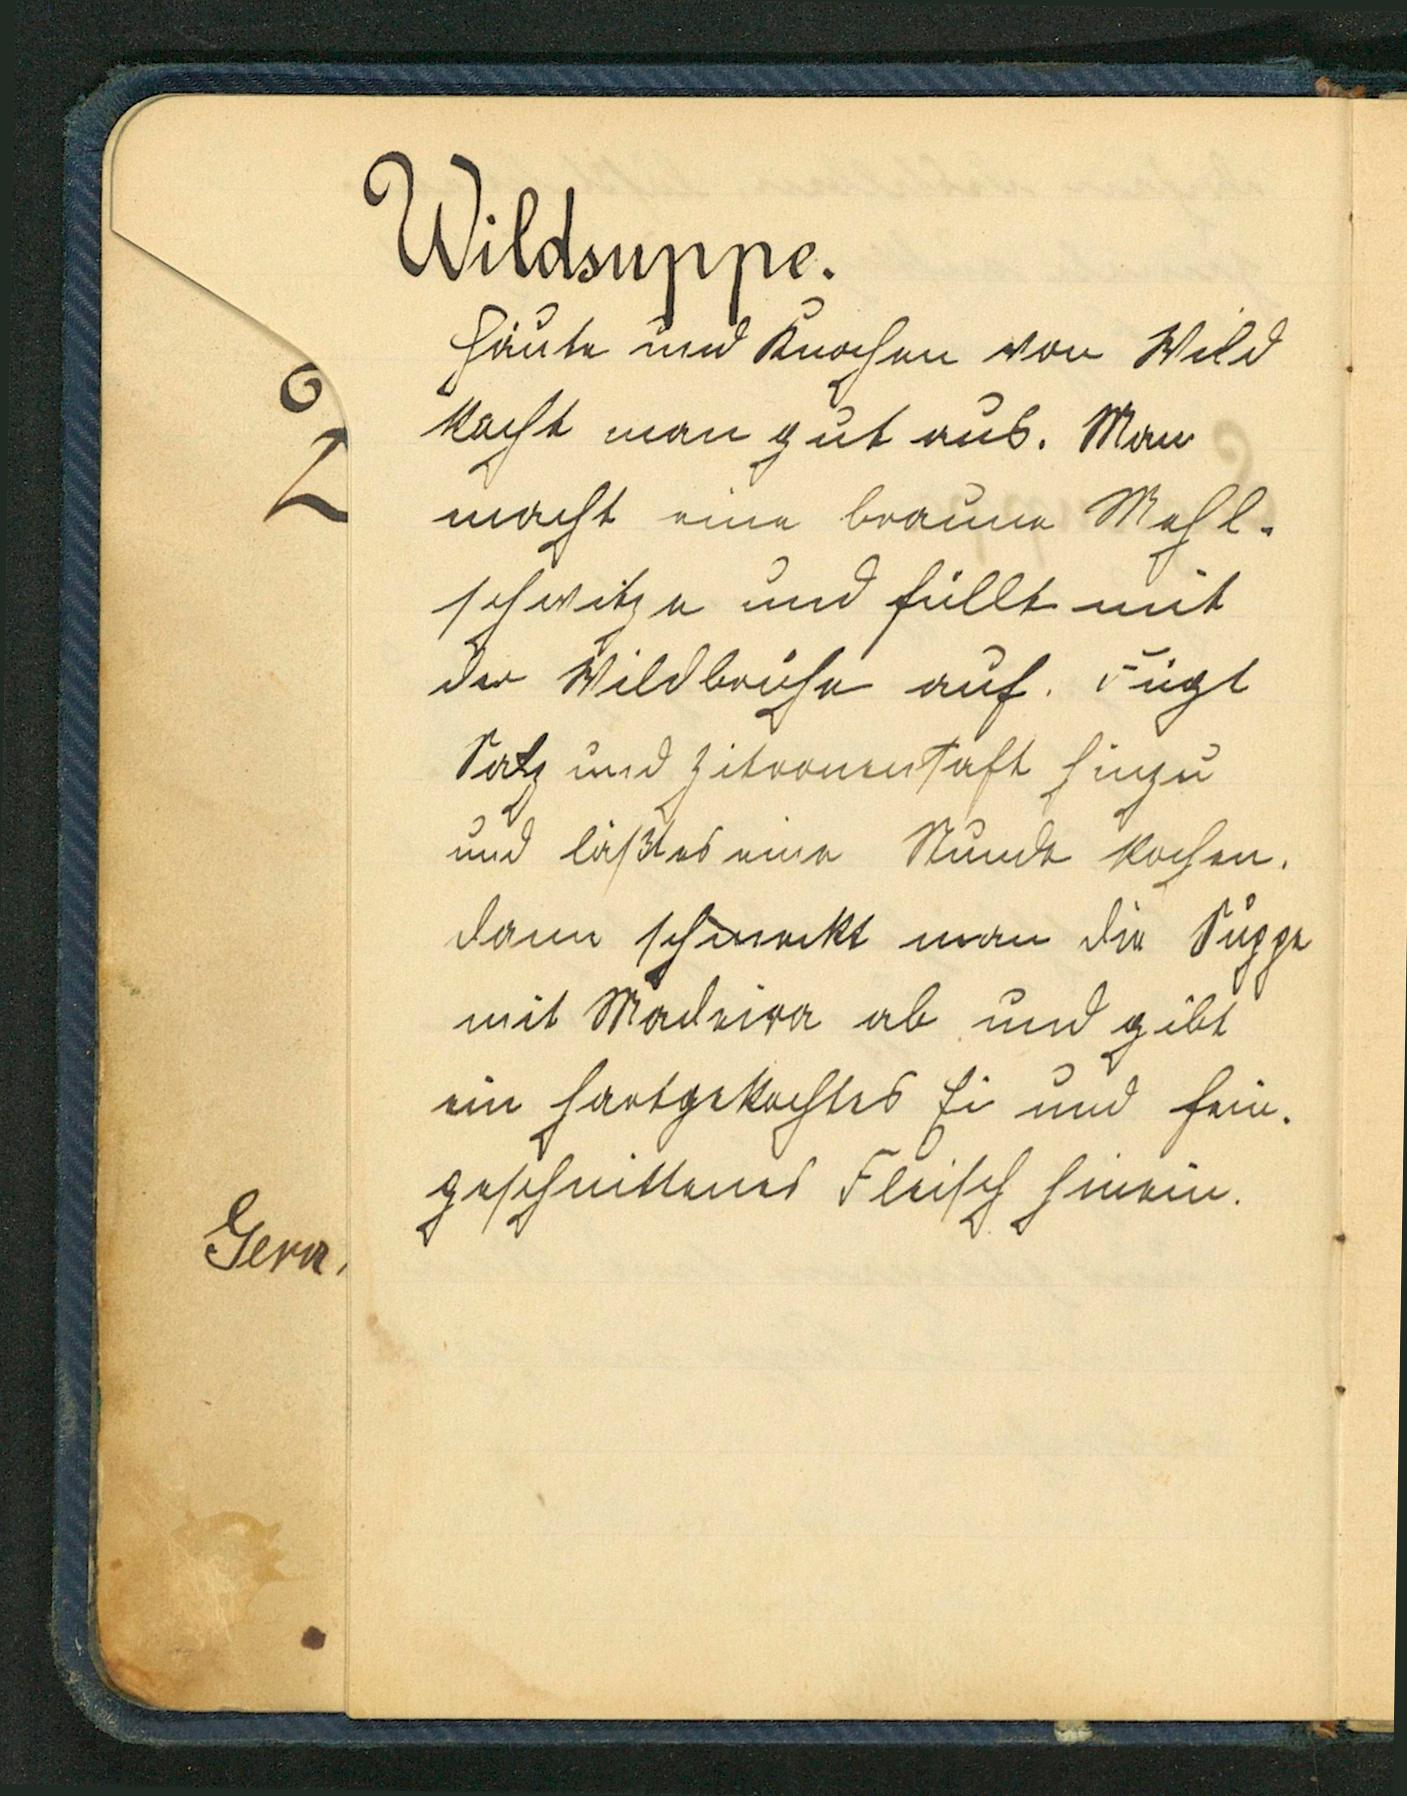 Wildsuppe.
Häute und Knochen von Wild
kocht man gut aus. Man
macht eine braune Mehl-
schwitze und füllt mit
der Wildbrühe auf. Fügt
Salz und Zitronensaft hinzu
und läßt es eine Stunde kochen.
dann schmeckt man die Suppe
mit Madeira ab und gibt
ein hartgekochtes Ei und fein-
geschnittenes Fleisch hinein.
Gera,